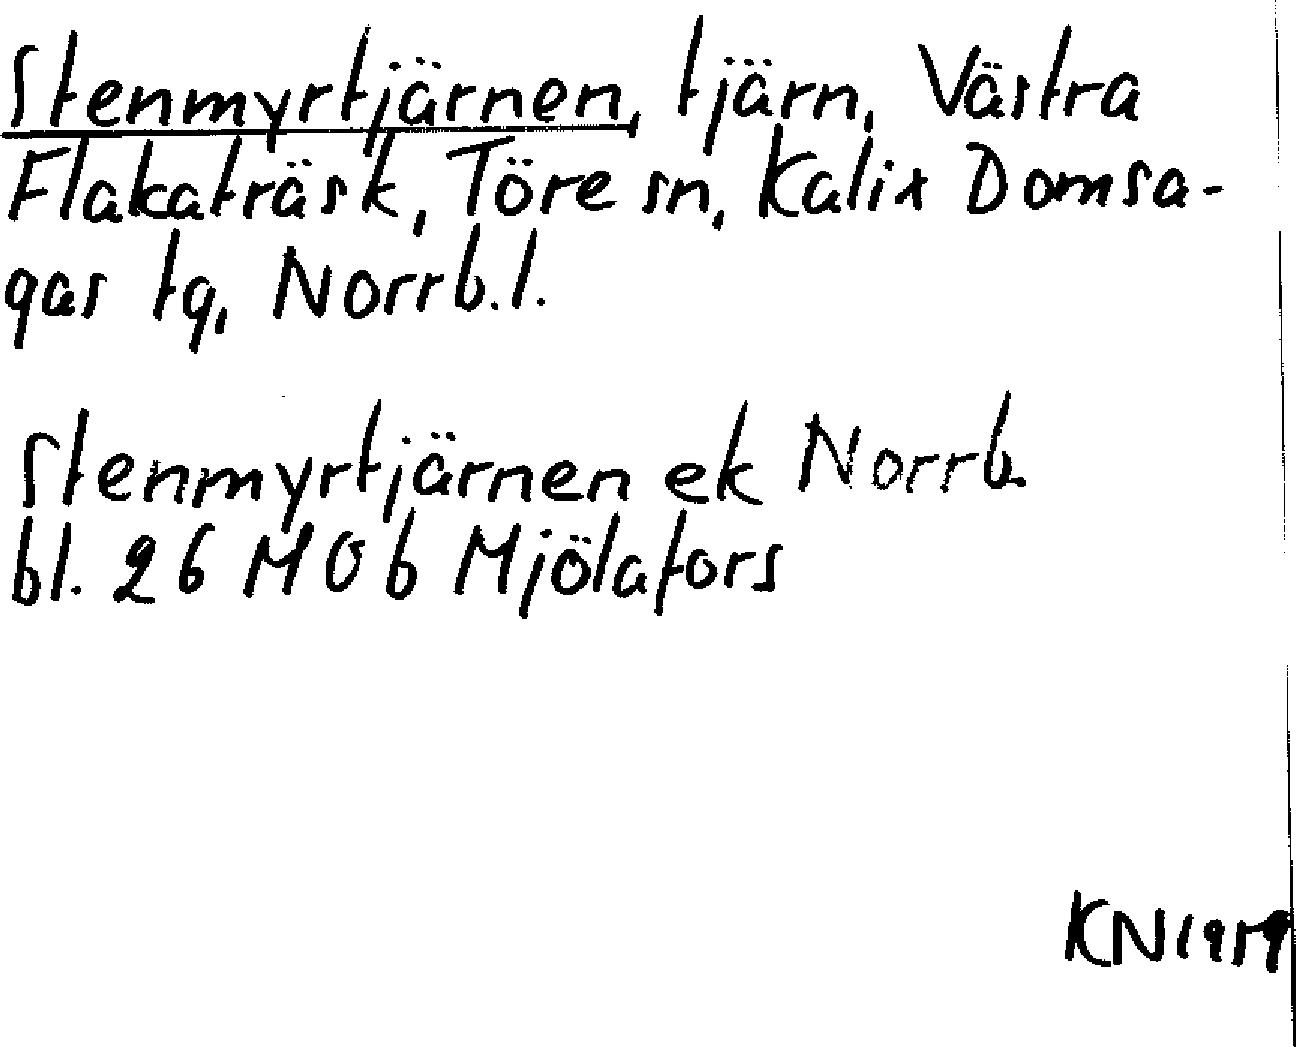 Stenmyrtjärnen, tjärn, Västra
Flakaträsk, Töre sn, Kalix Domsa-
gas tg, Norrb.l.
Stenmyrtjärnen ek Norrb.
bl. 26 M 0 b Mjölafors
KN 1959